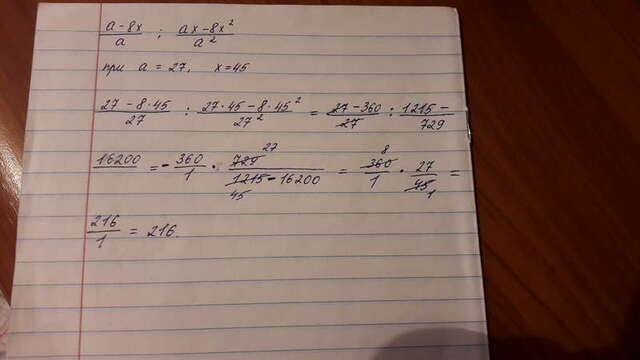 a-8x/a : ax-8x²/a²
при a = 27, x = 45
27-8·45/27 : 27·45-8·45²/27² = 27-360/27 : 1215-
16200/729 = -360/1 · 729/1215-16200 = 360/1 · 27/45 =
216/1 = 216